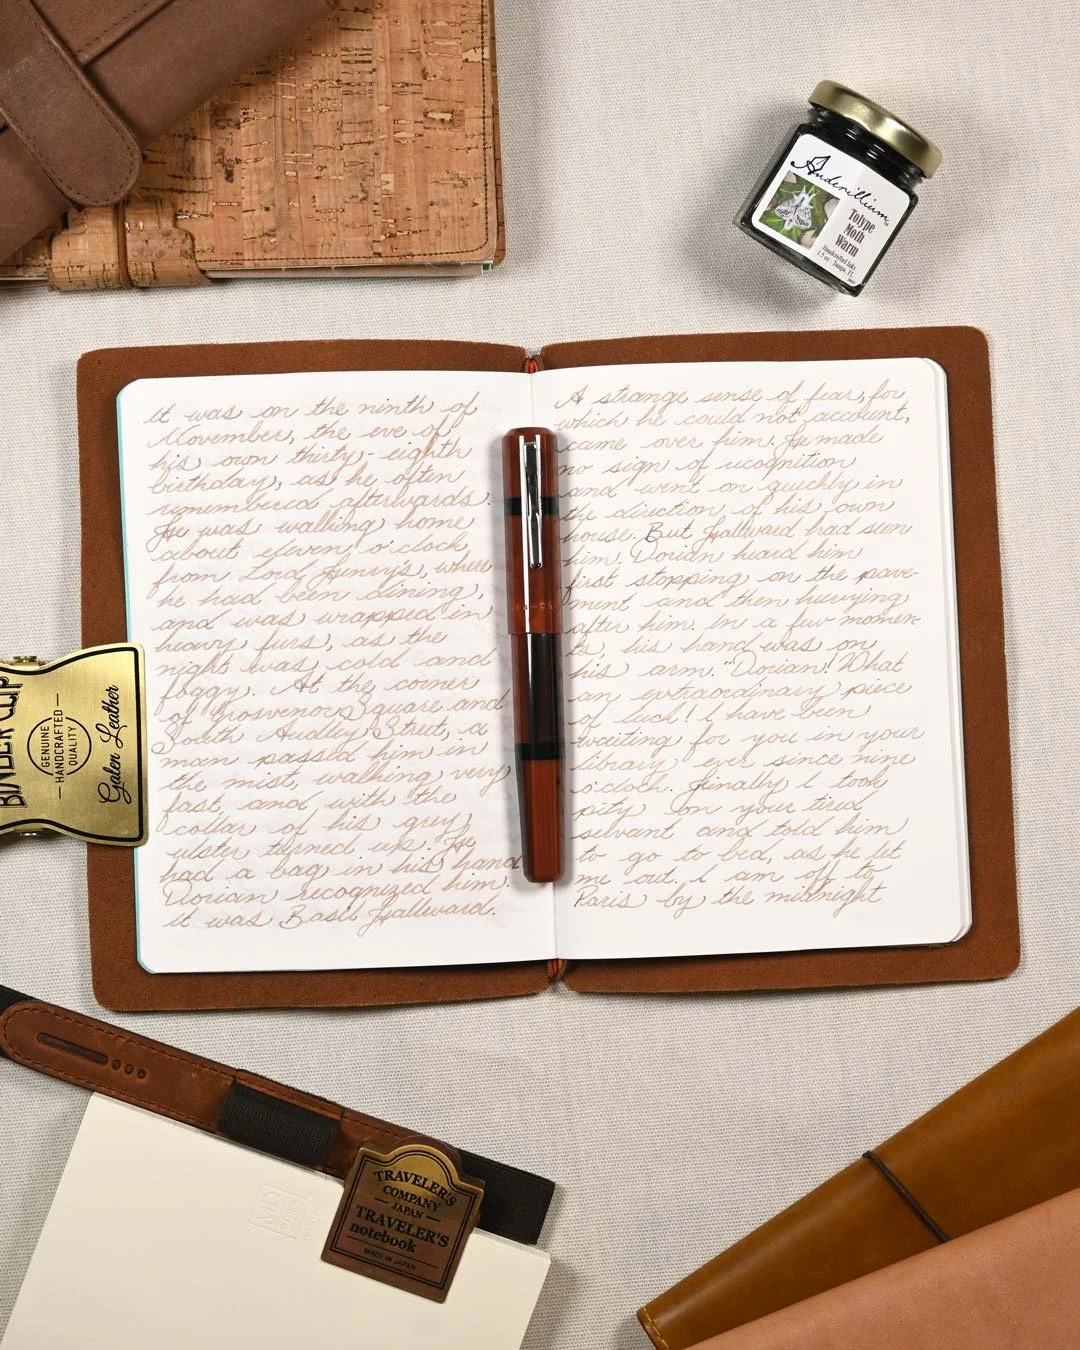 Anderillium
Tolype
Moth
Warm
Handcrafted Inks
1.5 oz - Tampa, FL
It was on the ninth of
November, the eve of
his own thirty-eighth
birthday, as he often
remembered afterwards.
He was walking home
about eleven o'clock
from Lord Henry's, where
he had been dining,
and was wrapped in
heavy furs, as the
night was cold and
foggy. At the corner
of Grosvenor Square and
South Audley Street, a
man passed him in
the mist, walking very
fast, and with the
collar of his grey
ulster turned up. He
had a bag in his hand
Dorian recognized him.
It was Basil Hallward.
A strange sense of fear, for
which he could not account,
came over him. He made
no sign of recognition
and went on quickly in
the direction of his own
house. But Hallward had seen
him. Dorian heard him
first stopping on the pave-
ment and then hurrying
after him. In a few momen-
ts, his hand was on
his arm. "Dorian! What
an extraordinary piece
of luck! I have been
waiting for you in your
library ever since nine
o'clock. Finally I took
pity on your tired
servant and told him
to go to bed, as he let
me out. I am off to
Paris by the midnight
BINDER CLIP
GENUINE
HANDCRAFTED
QUALITY
Galen Leather
MD
TRAVELER'S
COMPANY
JAPAN
TRAVELER'S
notebook
MADE IN JAPAN